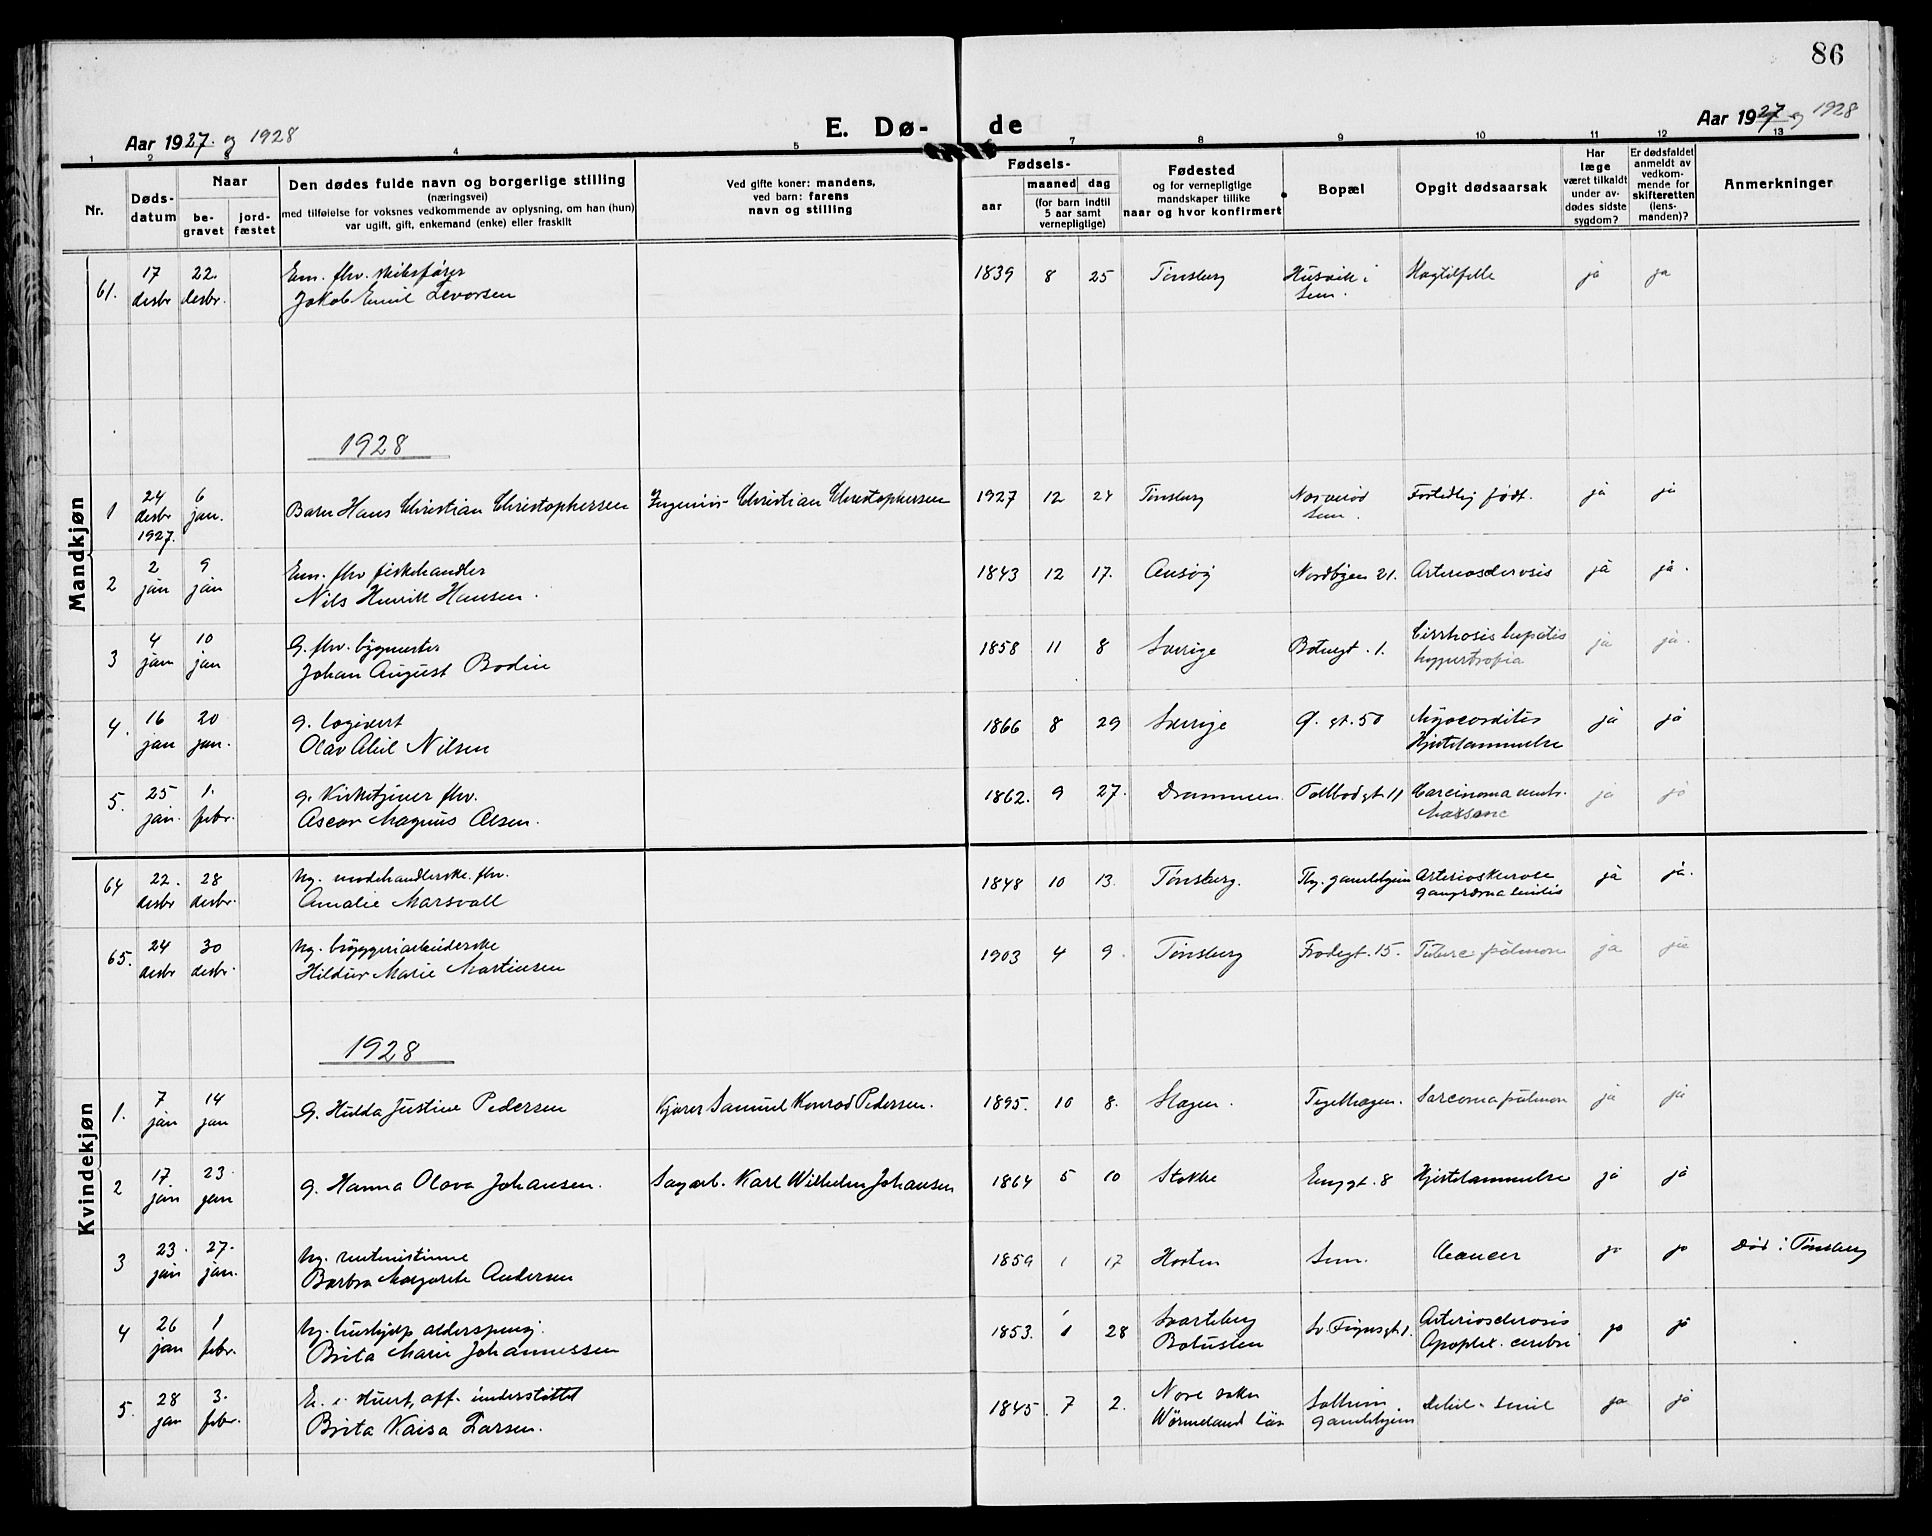 86
Aar 1927. og 1928
E. Dø- de
Aar 1927 og 1928
1 2 3 4 5 7 8 9 10 11 12 13
Nr.
Døds-
datum
Naar
be-
gravet
jord-
fæstet
Den dødes fulde navn og borgerlige stilling
(næringsvei)
med tilføielse for voksnes vedkommende av oplysning, om han (hun)
var ugift, gift, enkemand (enke) eller fraskilt
Ved gifte koner: mandens,
ved barn: farens
navn og stilling
Fødsels-
aar
maaned dag
(for barn indtil
5 aar samt
vernepligtige)
Fødested
og for vernepligtige
mandskaper tillike
naar og hvor konfirmert
Bopæl
Opgit dødsaarsak
Har
læge
været tilkaldt
under av-
dødes sidste
sygdom?
Er dødsfaldet
anmeldt av
vedkom-
mende for
skifteretten
(lens-
manden)?
Anmerkninger
Mandkjøn
61. 17 desbr 22. desbr. Em. fhv. skibsfører
Jakob Emil Levorsen 1839 8 25 Tønsberg Husvik i Sem. Slagtilfelle ja ja
1928
1 24 desbr 1927. 6 jan. Barn Hans Christian Christophersen Ingeniør Christian Christophersen 1927 12 24 Tønsberg Sem. Fortidlig født. ja ja
2 2 jan 9 jan Em. fhv fiskehandler
Nils Henrik Hansen. 1843 12 17. Nordbyen 21. Arteriosclerosis ja ja.
3 4 jan 10 jan G. fhv. bygmester
Johan August Bodin 1858 11 8 Sverige 1. Cirrhosis hepatis
hypertrofia ja ja.
4. 16 jan 20 jan. g. logivert
Olav Nilsen 1866 8 29 Sverige Ø. gt. 50 Myocarditis
Hjertelammelse ja ja
5. 25 jan. 1. febr. g. Kirketjener fhv.
Oscar Magnus Olsen. 1862. 9 27. Drammen. Tollbodgt. 11 Carcinoma ventr. ja ja
Kvindekjøn
64 22. desbr 28 desbr. Ug. modehandlerske. fhv.
Amalie Marsvall 1848 10 13. Tønsberg. Tbg. gamlehjem Arteriosklerose
gangræna senilis ja ja.
65. 24 desbr 30 desbr. Ug. bryggeriarbeiderske
Hildur Marie Martinsen 1903 4 9. Tønsberg Frodegt. 15. Tuberc. pulmon ja ja
1928
1. 7 jan 14 jan G. Hulda Justine Pedersen Kjører Samuel Konrad Pedersen. 1895. 10 8. Slagen. Teglhagen. Sarcoma pulmon ja ja
2 17. jan 23 jan g. Hanna Olava Johansen. Sagarb. Karl Wilhelm Johansen 1864 5 10 Stokke Engygt. 8 Hjertelammelse ja ja
3 23. jan 27. jan. Ug. rentenistinne
Barbra Margarete Andersen 1859 1 17 Horten Sem. Cancer ja ja Død i Tønsberg
4 26 jan 1 febr. Ug. hushjelp alderspensj.
Brita Marie Johannessen 1853. 1 28 Svarteborg
Bohuslen Sv. Foynsgt. 1. Arteriosclerosis
Apoplex. cerebri ja ja
5. 28 jan 3. febr. E. off. understøttet
Brita Kaisa Larsen. 1845. 7 2. Nore
Wermeland län Solheim
gamlehjem Debil. senil ja ja